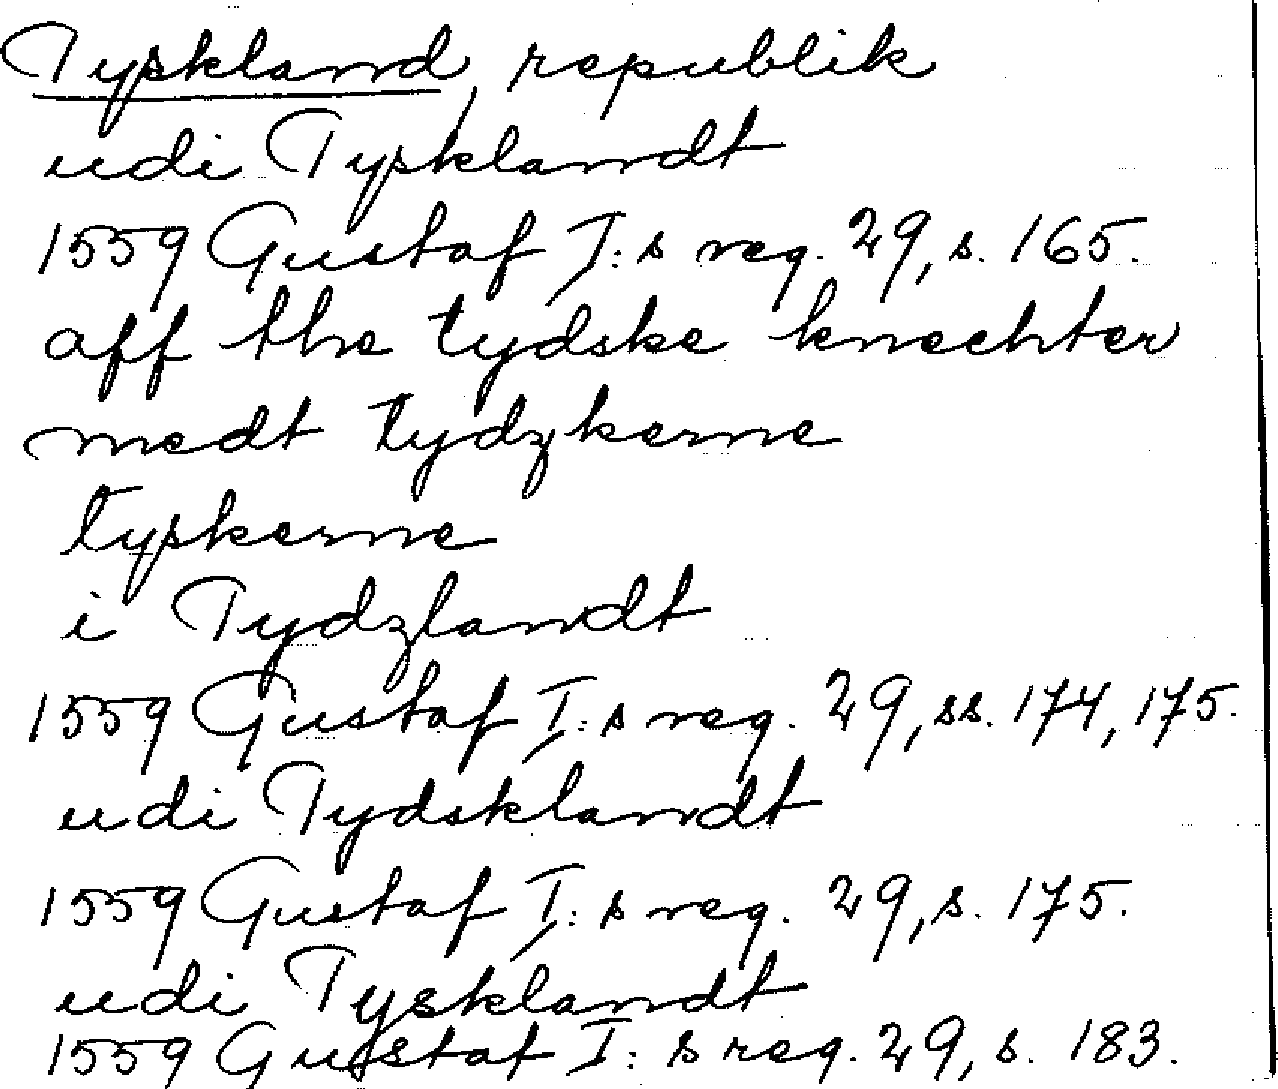 Tyskland, republik
udi Tysklandt
1559 Gustaf I:s reg. 29, s. 165.
aff the tydske knechter
medt tydzkerne
tyskerne
i Tydzlandt
1559 Gustaf I:s reg. 29, ss. 174, 175.
udi Tydsklandt
1559 Gustaf I:s reg. 29, s. 175.
udi Tysklandt
1559 Gustaf I:s reg. 29, s. 183.